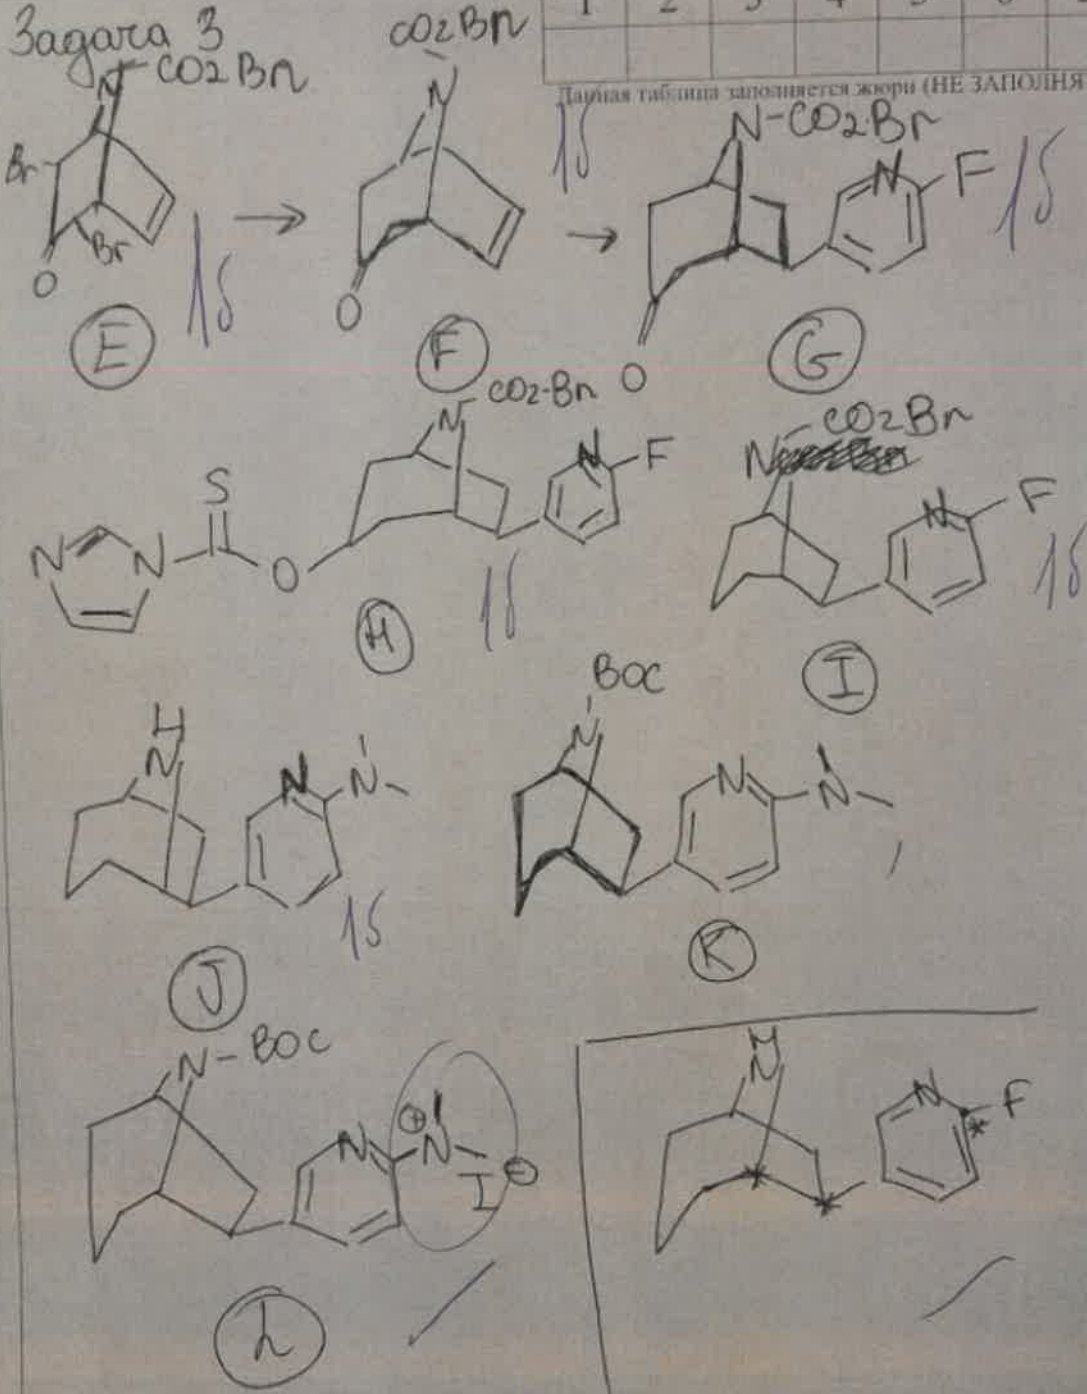 Задача 3
1 2 3 4 5 6
Данная таблица заполняется жюри (НЕ ЗАПОЛНЯ
N-CO2Bn
Br
Br
O
1б
E
CO2Bn
N
O
1б
F
N-CO2Bn
N
F
O
1б
G
S
N
N
O
N
CO2-Bn
N
F
1б
H
N
CO2Bn
N
F
1б
I
H
N
N
N
1б
J
BOC
N
N
N
K
N-BOC
N
⊕
N
I
⊖
L
H
N
N
F
*
*
*